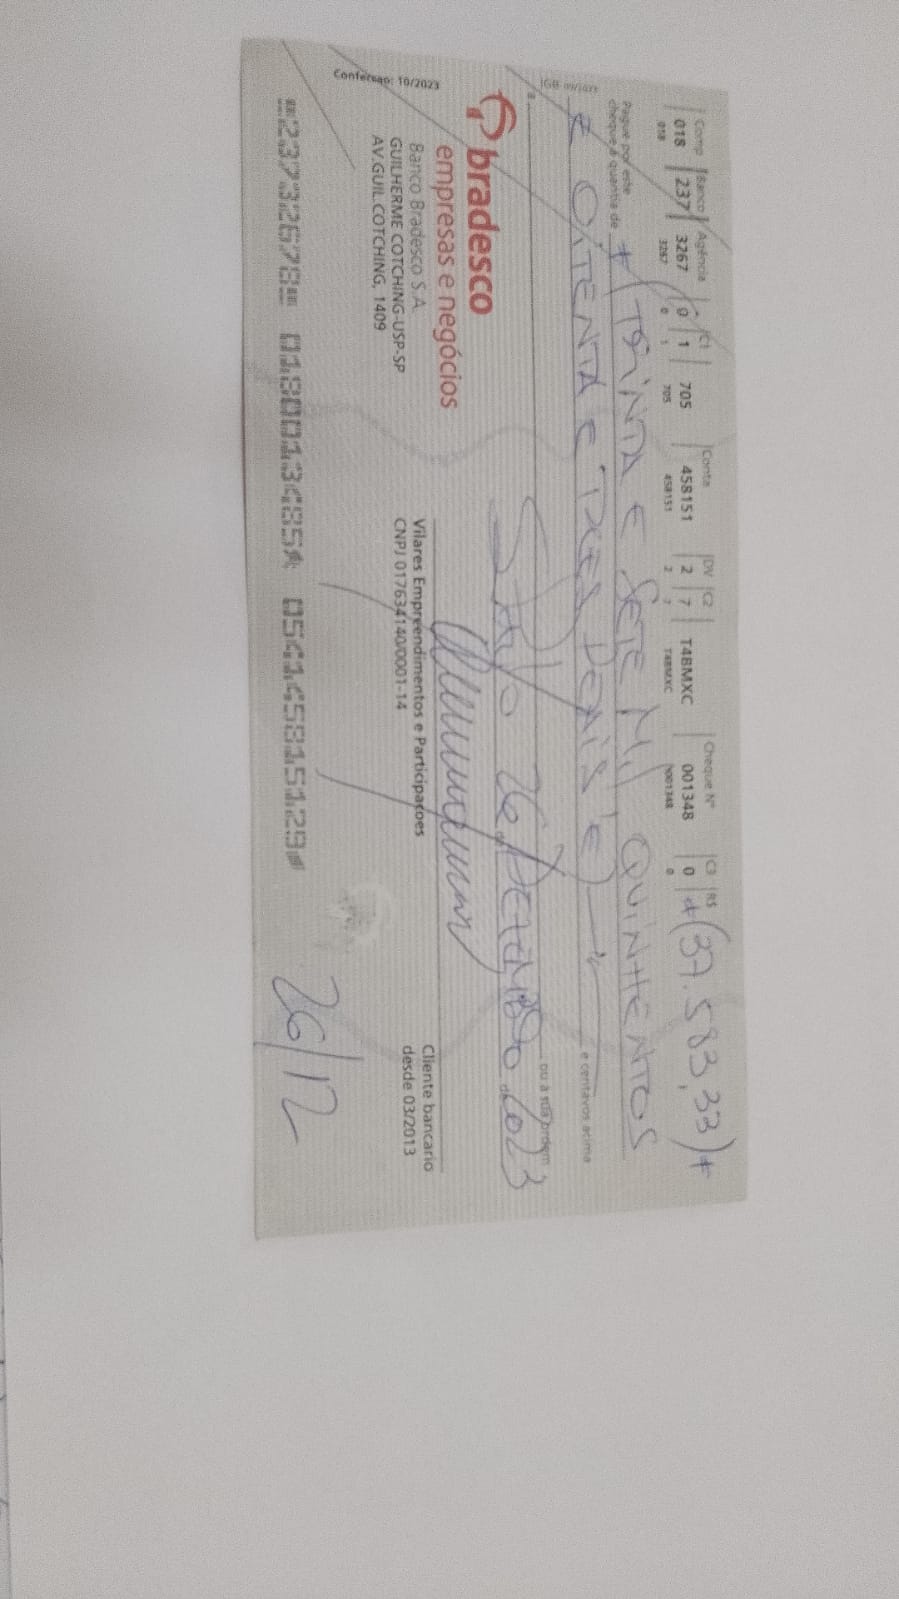 Comp Banco Agência C1 Conta DV C2 Cheque Nº C3 R$
018 237 3267 0 1 705 458151 2 7 T4BMXC 001348 0 #(37.583,33)#
018 3267 0 1 705 458151 2 7 T4BMXC 001348 0
Pague por este
cheque a quantia de # (TRINTA E SETE MIL QUINHENTOS
E OITENTA E TRES REAIS E) e centavos acima
a ou à sua ordem
S. PAULO 26 DEZEMBRO de 2023
bradesco
empresas e negócios
Banco Bradesco S.A.
GUILHERME COTCHING-USP-SP
AV.GUIL.COTCHING, 1409
Vilares Empreendimentos e Participacoes
CNPJ 017634140/0001-14
Cliente bancario
desde 03/2013
Confecçao: 10/2023
23732678 0180013485 054145815129
26/12